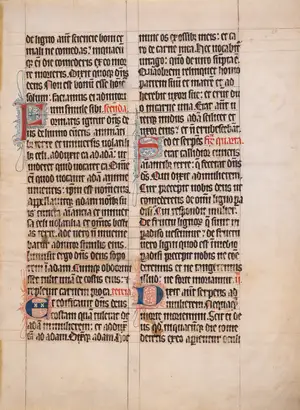 de ligno aut sciencie boni et
mali ne comedas. In quacu
q; em die comederis ex eo mor
te morieris. Dixit quoq; dns
deus Non est bonum esse hoīez
solum. faciamus ei adiutori
um simile sibi. scda
Formatis igitur dns de
us de humo cunctis animan
tibus terre et universis volatili
bus celi. adduxit ea ad adā. ut
videret quid vocaret ea. Omne
em quod vocavit adā anime
viventis. ipm est nomen eius.
Appellavitq; adam nominibz
suis cuncta animācia et univer
sa celi volatilia et omnes bestias
terre. Ade vero non inveniebatur
adiutor similis eius.
Immisit ergo dns deus sopo
rem in adam. Cumq; obdormi
isset tulit unā de costis eius. et
replevit carnem pro ea. tercia
Et edificavit dns deus
costam quā tulerat de
adā in mulierem. et adduxit
eā ad adam. Dixitq; adam Hoc
nunc os ex ossibz meis. et ca
ro de carne mea. Hec vocabit
virago. quō de viro sūpta ē.
Quāobrem relinquet homo
patrem suū et matrem et ad
herebit uxori sue. et erunt du
o in carne una. Erat aut ut
erq; nudus adā scilicet et
uxor eius. et nō erubescebāt.
Sed et serpēs quarta
erat callidior cunctis
animātibz terre. que fecerat dns
deus. Qui dixit ad mulierem.
Cur precepit vobis deus ut nō
comederetis de omī ligno pa
disi. Cui respondit mulier.
De fructu lignorū que sunt in
paradiso vescimur. de fructu
vero ligni quod est in medio
paradisi precepit nobis ne co
mederemus et ne tangeremus
illud. ne forte moriamur.
Dixit aut serpens ad
mulierem. Nequaquā
morte moriemini. Scit ei de
us qd in quacumq; die come
deritis ex eo aperientur oculi